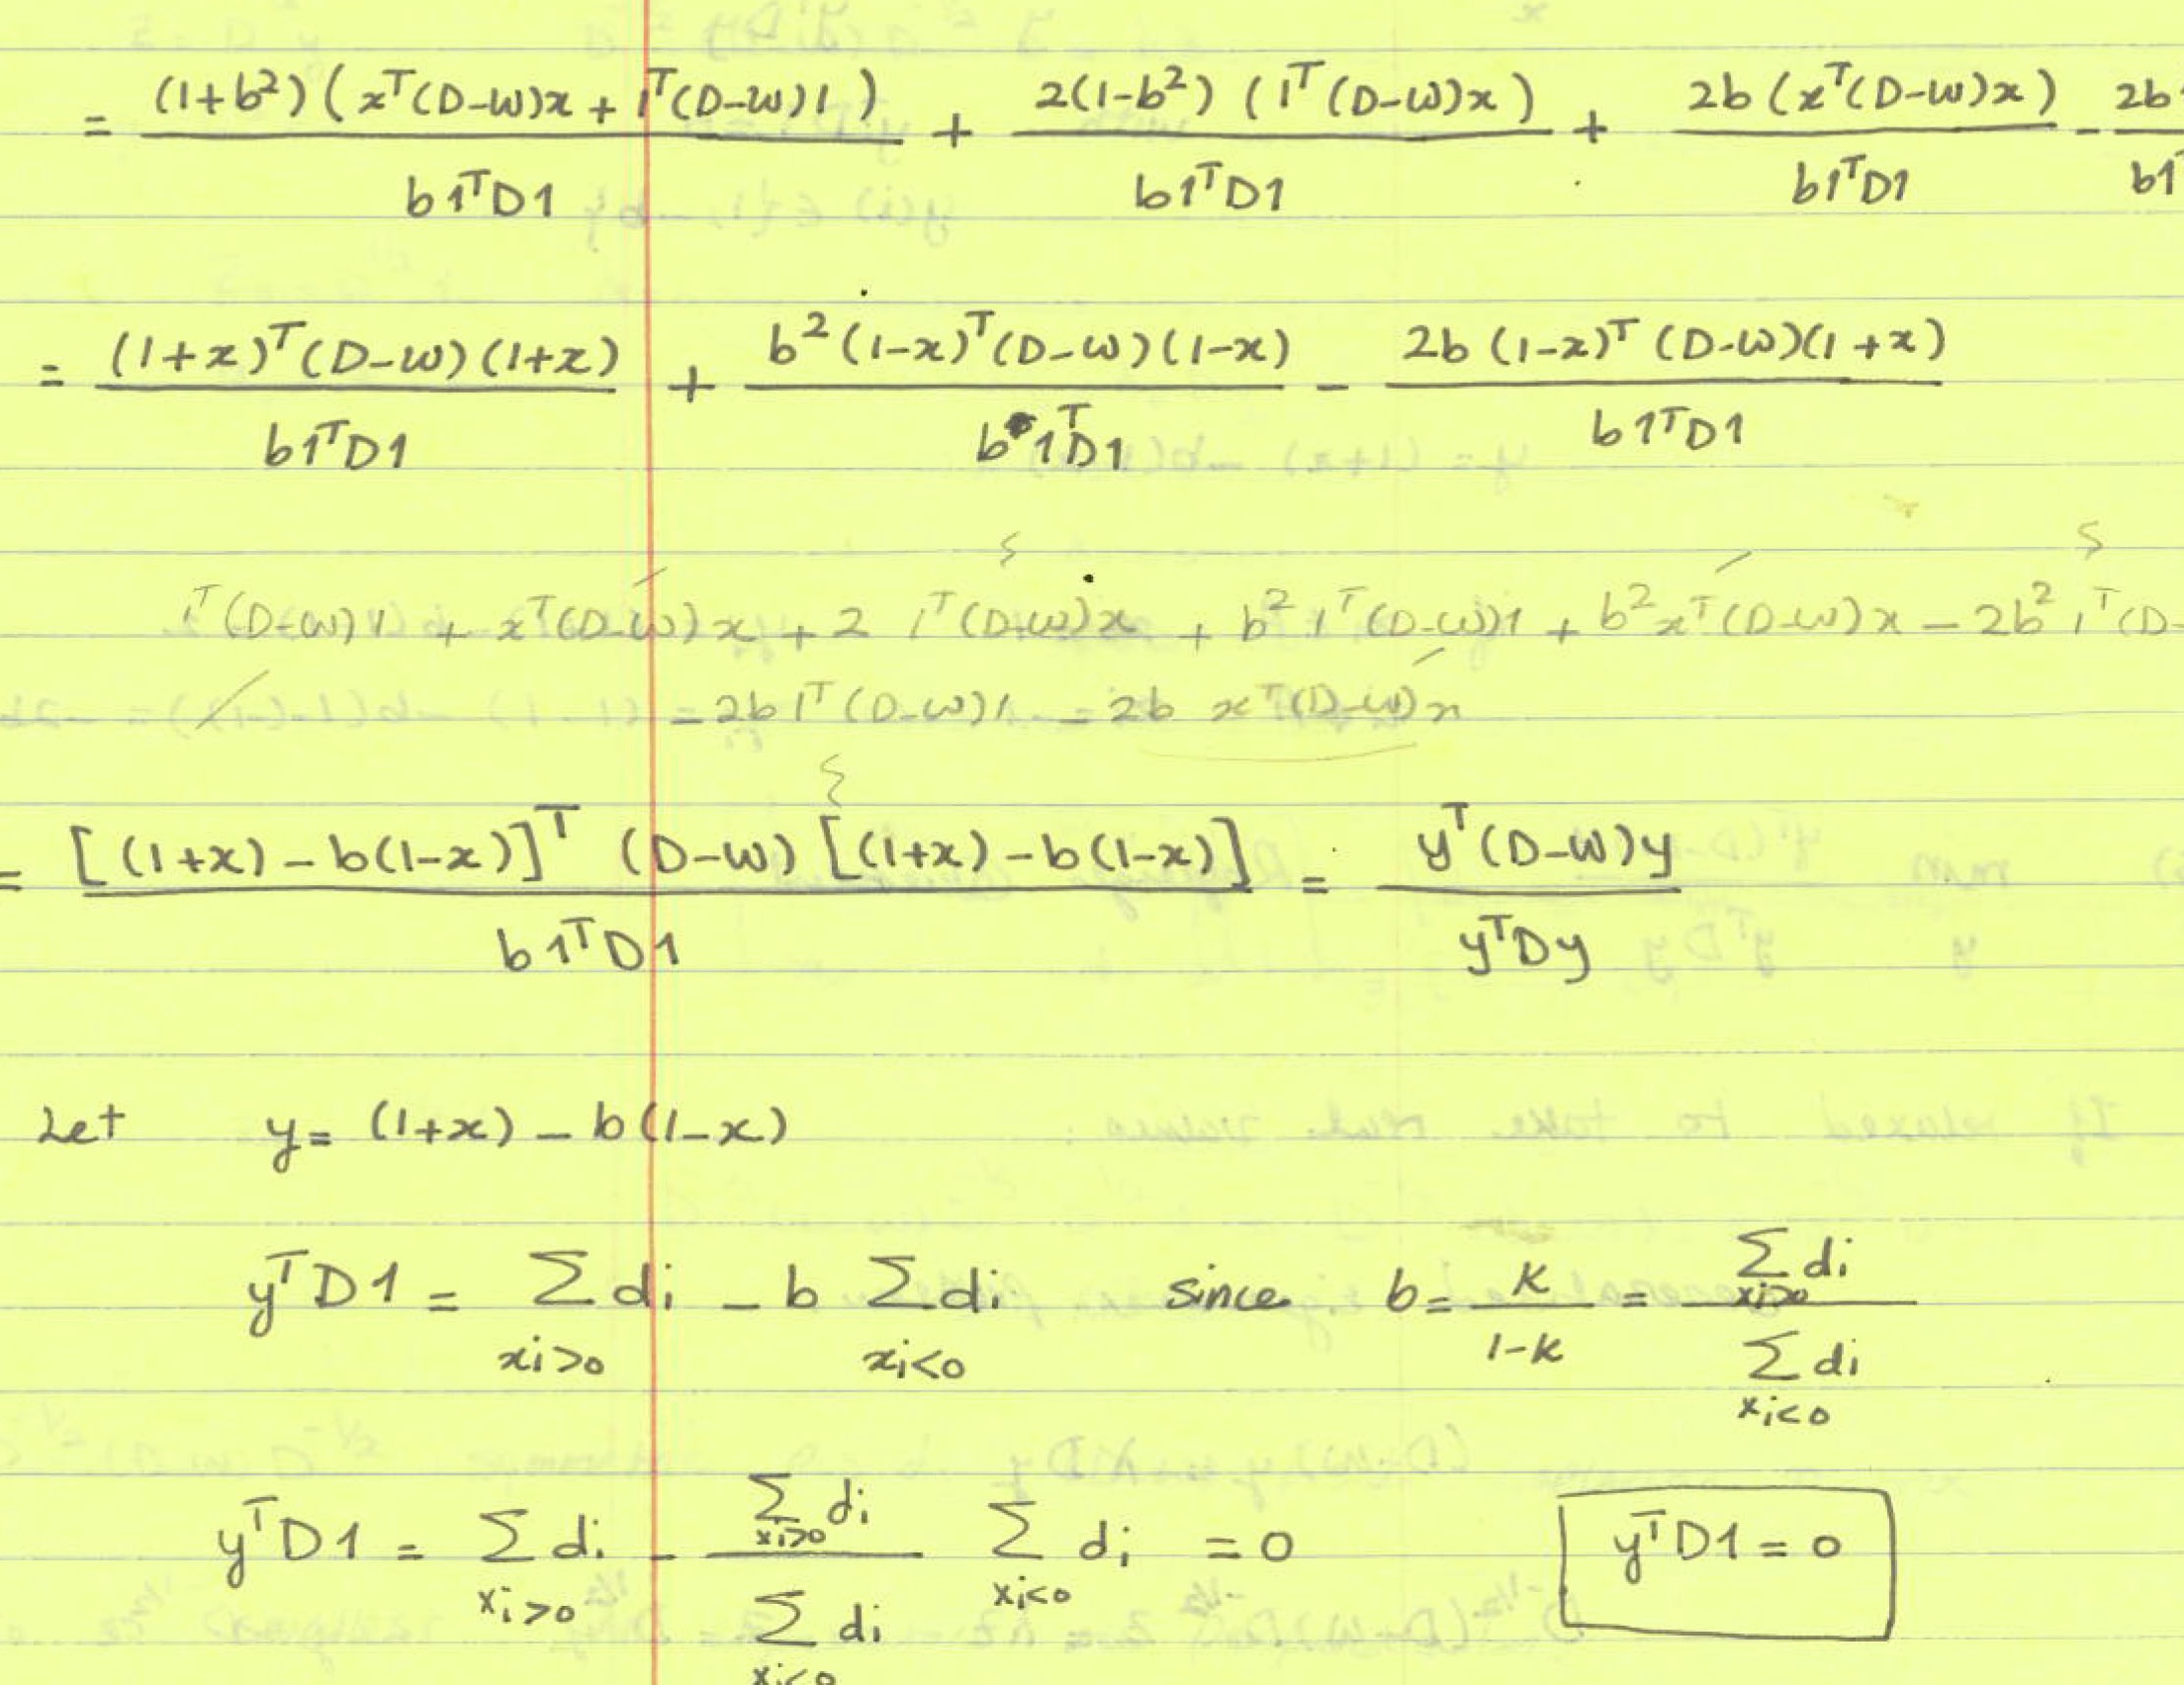 = (1+b²)(xᵀ(D-W)x + 1ᵀ(D-W)1) / b1ᵀD1 + 2(1-b²)(1ᵀ(D-W)x) / b1ᵀD1 + 2b(xᵀ(D-W)x) / b1ᵀD1 - 2b / b1ᵀ
= (1+x)ᵀ(D-W)(1+x) / b1ᵀD1 + b²(1-x)ᵀ(D-W)(1-x) / b1ᵀD1 - 2b(1-x)ᵀ(D-W)(1+x) / b1ᵀD1
1ᵀ(D-W)1 + xᵀ(D-W)x + 2 1ᵀ(D-W)x + b² 1ᵀ(D-W)1 + b²xᵀ(D-W)x - 2b² 1ᵀ(D-
-2b 1ᵀ(D-W)1 - 2b xᵀ(D-W)x
= [(1+x) - b(1-x)]ᵀ (D-W) [(1+x) - b(1-x)] / b1ᵀD1 = yᵀ(D-W)y / yᵀDy
Let y = (1+x) - b(1-x)
yᵀD1 = Σ_{xi>0} di - b Σ_{xi<0} di since b = K / 1-K = Σ_{xi>0} di / Σ_{xi<0} di
yᵀD1 = Σ_{xi>0} di - Σ_{xi>0} di / Σ_{xi<0} di Σ_{xi<0} di = 0 yᵀD1 = 0